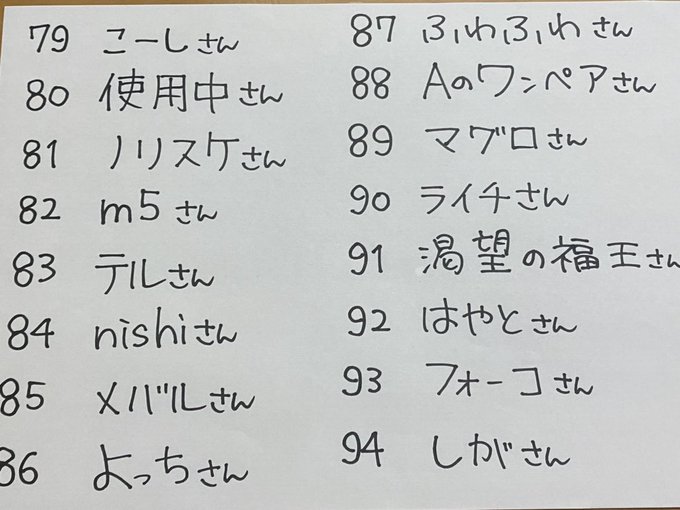 79 こーしさん
80 使用中さん
81 ノリスケさん
82 m5さん
83 テルさん
84 nishiさん
85 メバルさん
86 よっちさん
87 ふわふわさん
88 Aのワンペアさん
89 マグロさん
90 ライチさん
91 渇望の福王さん
92 はやとさん
93 フォーコさん
94 しがさん